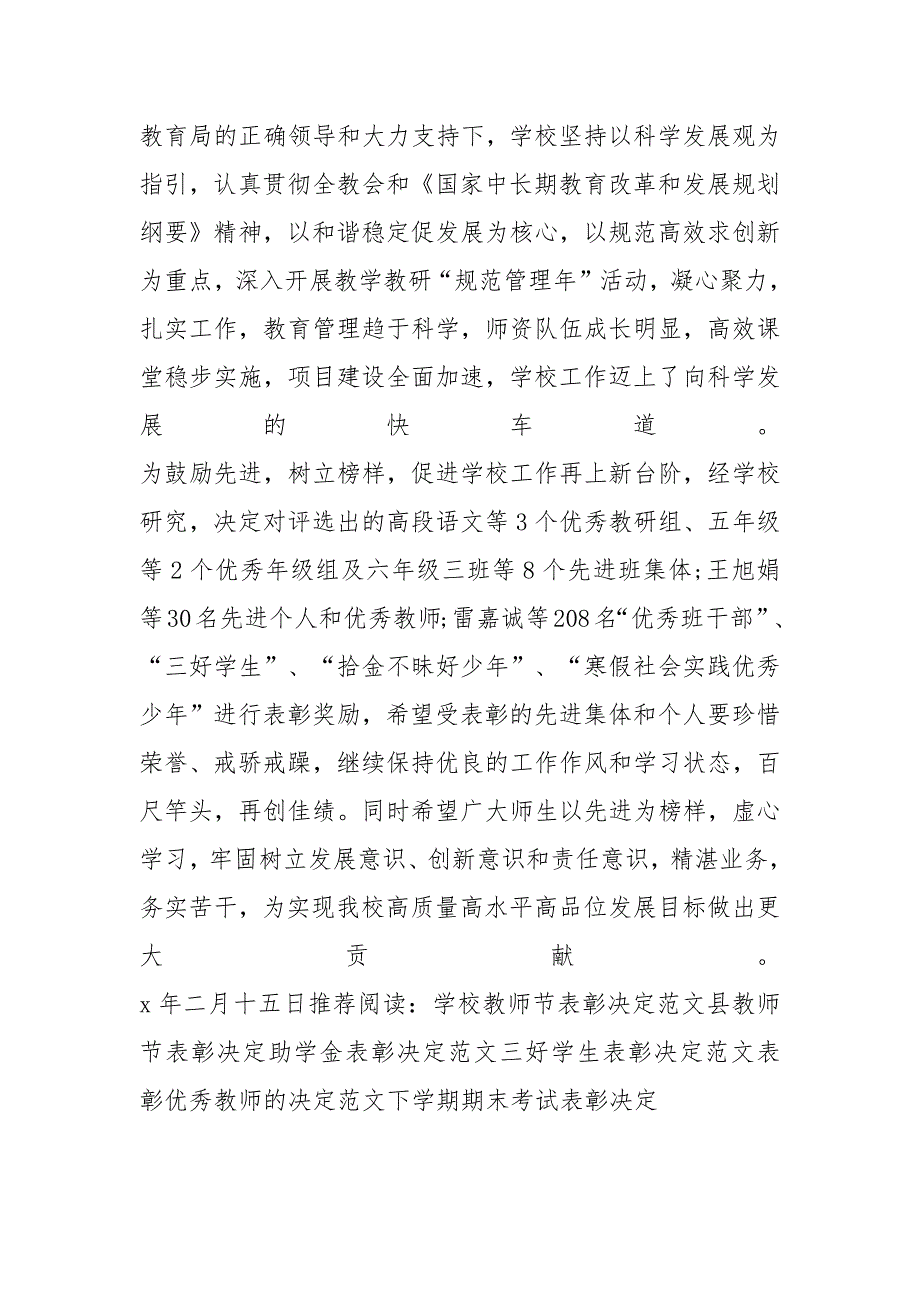 教育局的正确领导和大力支持下，学校坚持以科学发展观为
指引，认真贯彻全教会和《国家中长期教育改革和发展规划
纲要》精神，以和谐稳定促发展为核心，以规范高效求创新
为重点，深入开展教学教研“规范管理年”活动，凝心聚力，
扎实工作，教育管理趋于科学，师资队伍成长明显，高效课
堂稳步实施，项目建设全面加速，学校工作迈上了向科学发
展的快车道。
为鼓励先进，树立榜样，促进学校工作再上新台阶，经学校
研究，决定对评选出的高段语文等 3 个优秀教研组、五年级
等 2 个优秀年级组及六年级三班等 8 个先进班集体;王旭娟
等 30 名先进个人和优秀教师;雷嘉诚等 208 名“优秀班干部”、
“三好学生”、“拾金不昧好少年”、“寒假社会实践优秀
少年”进行表彰奖励，希望受表彰的先进集体和个人要珍惜
荣誉、戒骄戒躁，继续保持优良的工作作风和学习状态，百
尺竿头，再创佳绩。同时希望广大师生以先进为榜样，虚心
学习，牢固树立发展意识、创新意识和责任意识，精湛业务，
务实苦干，为实现我校高质量高水平高品位发展目标做出更
大贡献。
x 年二月十五日推荐阅读：学校教师节表彰决定范文县教师
节表彰决定助学金表彰决定范文三好学生表彰决定范文表
彰优秀教师的决定范文下学期期末考试表彰决定